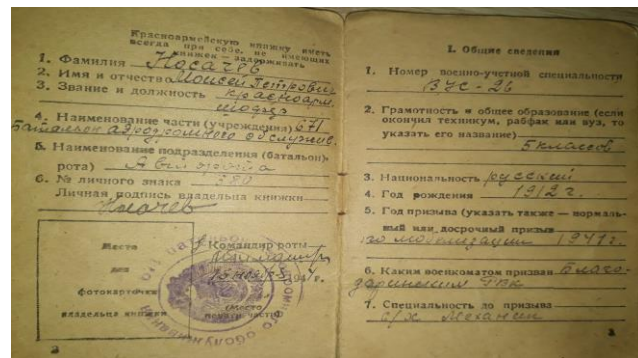 Красноармейскую книжку иметь
всегда при себе. не имеющих
книжек — задерживать
1. Фамилия Носачев
2. Имя и отчество Моисей Петрович
3. Звание и должность Красноарм.
4. Наименование части (учреждения) 671
Батальон аэродромного обслужив.
5. Наименование подразделения (батальон,
рота)
6. № личного знака
Личная подпись владельца книжки
Носачев
Место
для
фотокарточки
владельца книжки
Командир роты
194 г.
(место
печати части)
I. Общие сведения
1. Номер военно-учетной специальности
ВУС-26
2. Грамотность и общее образование (если
окончил техникум, рабфак или вуз, то
указать его название)
5 классов
3. Национальность русский
4. Год рождения 1912 г.
5. Год призыва (указать также — нормаль-
ный или досрочный призыв
по мобилизации 1941 г.
6. Каким военкоматом призван Благо-
даринским РВК
7. Специальность до призыва
с/х Механик